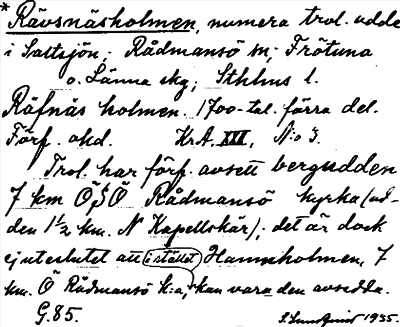 * Rävsnäsholmen, numera trol. udde
i Saltsjön; Rådmansö sn; Frötuna
o. Länna skg; Sthlms l.
Räfnäs holmen. 1700-tal. förra del.
Förf. okd. KrA. XVI, N:o 3.
Trol. har förf. avsett bergudden
7 km ÖSÖ Rådmansö kyrka (ud-
den 1½ km. N Kapellskär); det är dock
ej uteslutet att i stället Hamnholmen, 7
km. Ö Rådmansö k:a, kan vara den avsedda.
G. 85. S. Lundqvist 1935.